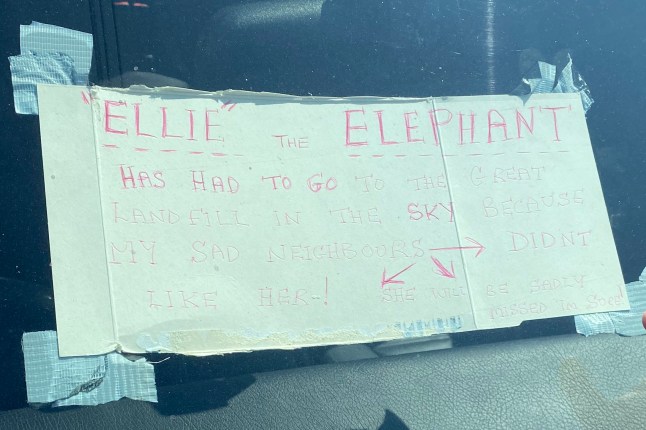 "ELLIE" THE ELEPHANT
HAS HAD TO GO TO THE GREAT
LANDFILL IN THE SKY BECAUSE
MY SAD NEIGHBOURS → DIDNT
LIKE HER-! SHE WILL BE SADLY
MISSED IM SURE!